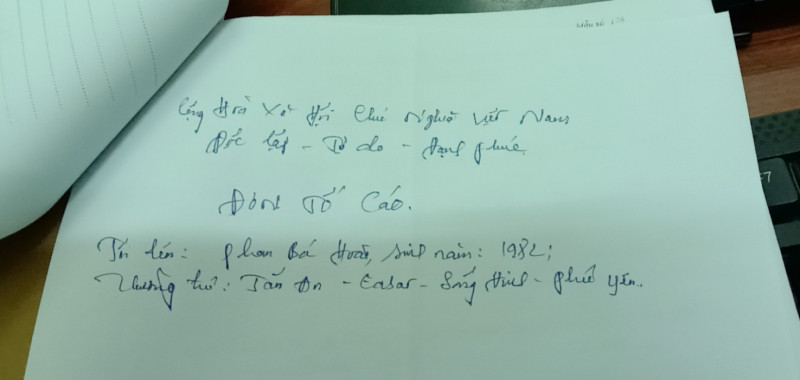 Mẫu số
Cộng Hoà Xã Hội Chủ Nghĩa Việt Nam
Độc lập - Tự do - Hạnh phúc
Đơn Tố Cáo.
Tôi tên: Phan Bá Hoà, sinh năm: 1982;
Thường trú: Tân An - Eabar - Sông Hinh - Phú Yên.
F7